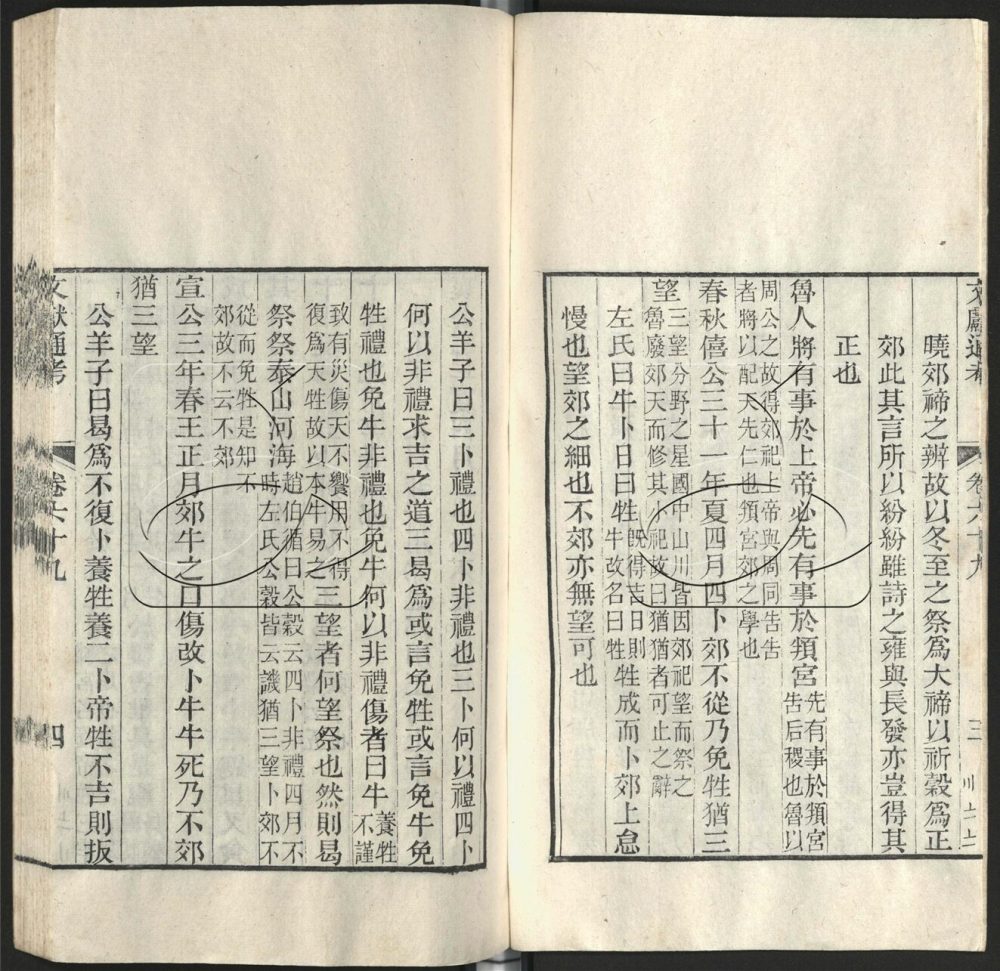 文獻通考　卷六十九　三
曉郊禘之辨故以冬至之祭爲大禘以祈穀爲正
郊此其言所以紛紛雖詩之雍與長發亦豈得其
正也
魯人將有事於上帝必先有事於頖宮先有事於頖宮告后稷也魯以
周公之故得郊祀上帝與周同告告者將以配天先仁也頖宮郊之學也
春秋僖公三十一年夏四月四卜郊不從乃免牲猶三
望三望分野之星國中山川皆因郊祀望而祭之魯廢郊天而修其小祀故曰猶猶者可止之辭
左氏曰牛卜日曰牲既得吉日則牛改名曰牲牲成而卜郊上怠
慢也望郊之細也不郊亦無望可也
公羊子曰三卜禮也四卜非禮也三卜何以禮四卜
何以非禮求吉之道三曷爲或言免牲或言免牛免
牲禮也免牛非禮也免牛何以非禮傷者曰牛養牲不謹
致有災傷天不饗用不得復爲天牲故以本牛易之三望者何望祭也然則曷
祭祭泰山河海趙伯循曰公穀云四卜非禮四月不時左氏公穀皆云譏猶三望卜郊不
從而免牲是知不郊故不云不郊
宣公三年春王正月郊牛之口傷改卜牛牛死乃不郊
猶三望
公羊子曰曷爲不復卜養牲養二卜帝牲不吉則扳
文獻通考　卷六十九　四